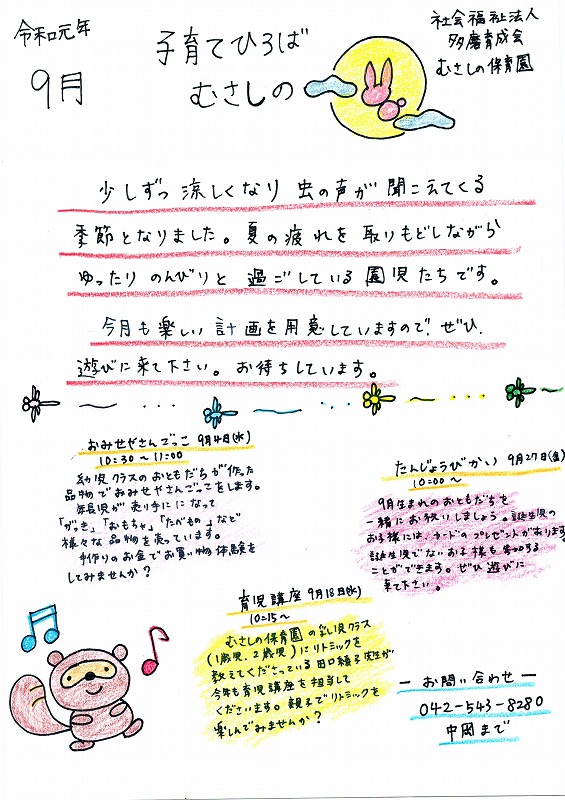 令和元年
9月
子育てひろば
むさしの
社会福祉法人
多磨育成会
むさしの保育園
少しずつ 涼しくなり 虫の声が 聞こえてくる
季節となりました。夏の疲れを 取りもどしながら
ゆったり のんびりと 過ごしている 園児たちです。
今月も楽しい 計画を用意していますので、ぜひ、
遊びに来て下さい。お待ちしています。
おみせやさんごっこ 9月4日(水)
10:30~11:00
幼児クラスのおともだちが作った
品物でおみせやさんごっこをします。
年長児が売り手にになって
「がっき」「おもちゃ」「たべもの」など
様々な品物を売っています。
手作りのお金でお買い物体験を
してみませんか?
たんじょうびかい 9月27日(金)
10:00~
9月生まれのおともだちを
一緒にお祝いしましょう。誕生児の
お子様には、カードのプレゼントがあります。
誕生児でないお子様も参加する
ことができます。ぜひ遊びに
来て下さい。
育児講座 9月18日(水)
10:15~
むさしの保育園の乳児クラス
(1歳児、2歳児)にリトミックを
教えてくださっている田口 子先生が
今年も育児講座を担当して
くださいます。親子でリトミックを
楽しんでみませんか?
ー お問い合わせ ー
042-543-8280
中岡まで